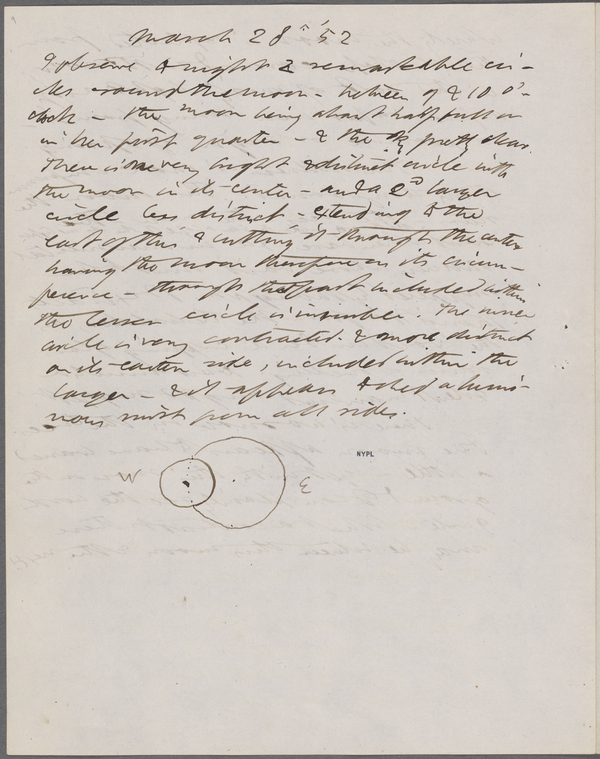 March 28th '52
I observe to night 2 remarkable cir-
cles round the moon - between 9 & 10 o'-
clock - the moon being about half full or
in her first quarter - & the sky pretty clear.
There is one very bright & distinct circle with
the moon in its center - and a 2nd larger
circle less distinct - extending to the
east of this & cutting it through the center
having the moon therefore on its circum-
ference - though the part included within
the lesser circle is invisible. The inner
circle is very contracted & more distinct
on its eastern side, included within the
larger - & it appears to shed a lumi-
nous mist from all sides.
W E
NYPL